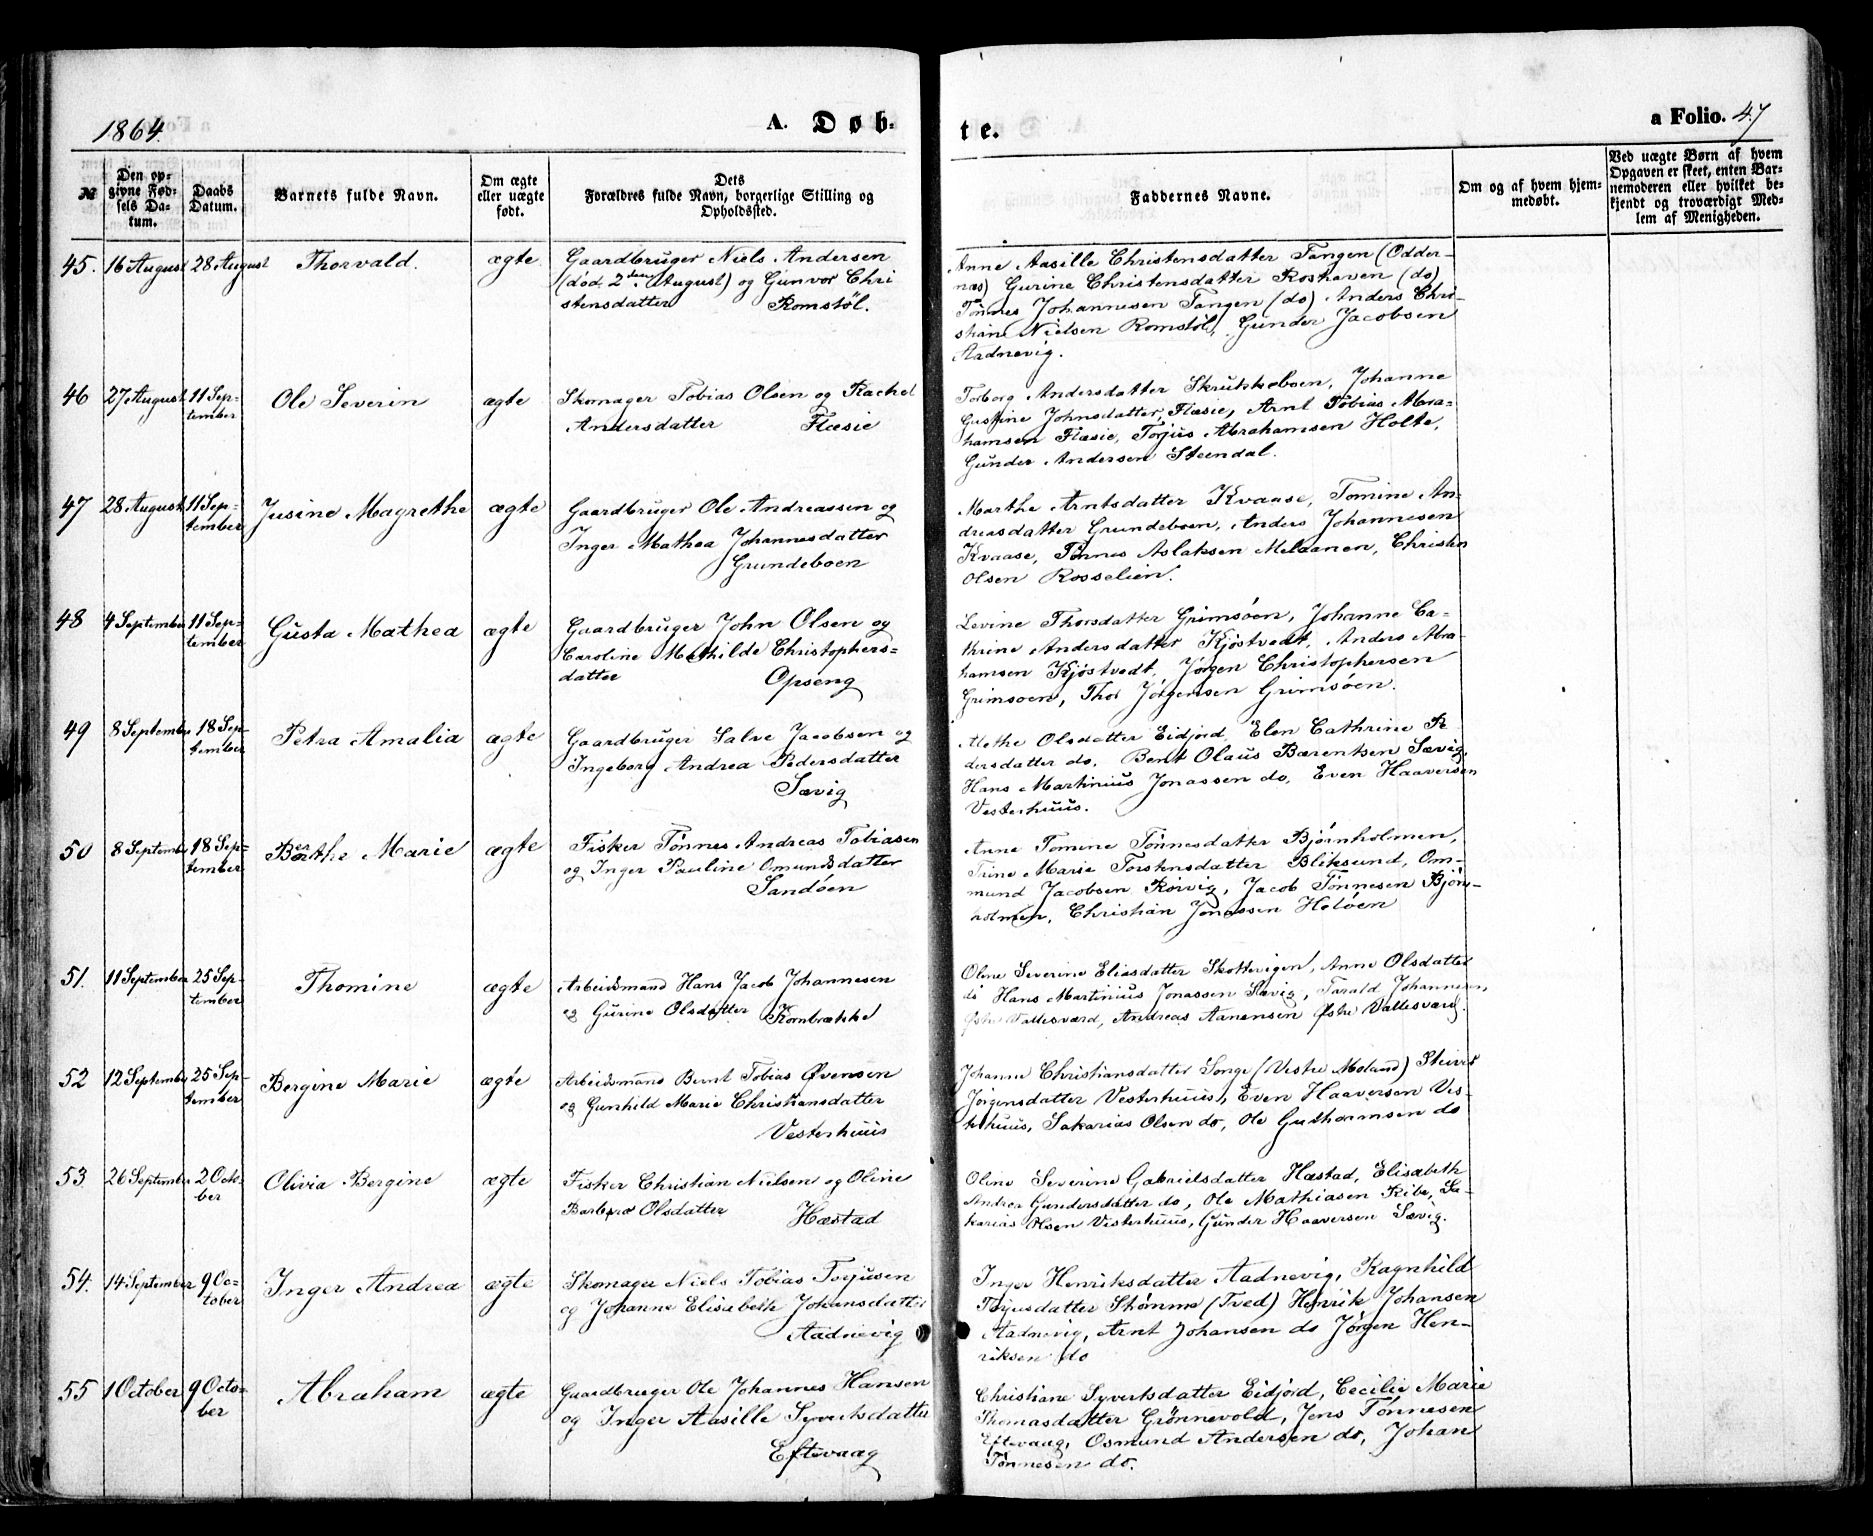 1864.
A. Døb-
te.
a Folio. 47
№
Den op-
givne Fød-
sels Da-
tum.
Daabs
Datum.
Barnets fulde Navn.
Om ægte
eller uægte
født.
Dets
Forældres fulde Navn, borgerlige Stilling og
Opholdssted.
Faddernes Navne.
Om og af hvem hjem-
medøbt.
Ved uægte Børn af hvem
Opgaven er skeet, enten Bar-
nemoderen eller hvilket be-
kjendt og troværdigt Med-
lem af Menigheden.
45. 16 August 28 August Thorvald. ægte
Gaardbruger Niels Andersen
(død. 2den August) og Gunvor Chri
stensdatter Romstøl.
Anne Aasille Christensdatter Tangen (Odder-
næs) Gurine Christensdatter Roshaven (do)
Tønnes Johannesen Tangen (do) Anders Chri-
stian Nielsen Romstøl, Gunder Jacobsen
Aadnevig.
46 27 August 11 Sep-
tember
Ole Severin ægte
Skomager Tobias Olsen og Rachel
Andersdatter Flæsie
Torborg Andersdatter Skrukkeboen, Johanne
Gustine Johnsdatter, Flæsie, Arnt Tobias Abra-
hamsen Flæsie, Torjus Abrahamsen Holte,
Gunder Andersen Steendal.
47 28 August 11 Sep-
tember
Jusine Magrethe ægte
Gaardbruger Ole Andreassen og
Inger Mathea Johannesdatter
Grundeboen
Marthe Arntsdatter Kvaase, Tomine An-
dreasdatter Grundeboen, Anders Johannesen
Kvaase, Tønnes Aslaksen Melaanen, Christen
Olsen Rosselien.
48 4 September 11 Sep-
tember
Gusta Mathea ægte
Gaardbruger John Olsen og
Caroline Mathilde Christophers=
datter Opseng
Levine Thorsdatter Grimsøen, Johanne Ca-
thrine Andersdatter Kjøstvedt, Anders Abra-
hamsen Kjøstvedt, Jørgen Christophersen
Grimsoen, Thor Jørgensen Grimsøen.
49 8 September 18 Sep-
tember
Petra Amalia ægte
Gaardbruger Salve Jacobsen og
Ingeborg Andrea Pedersdatter
Sævig
Alethe Olsdatter Eidjord, Elen Cathrine P
dersdatter do, Bent Olaus Bærentsen Sævig,
Hans Martinius Jonassen do, Even Haaversen
Vesterhuus.
50 8 September 18 Sep-
tember
Berthe Marie ægte
Fisker Tønnes Andreas Tobiasen
og Inger Pauline Omundsdatter
Sandøen
Anne Tomine Tønnesdatter Bjørnholmen,
Trine Marie Torstensdatter Bliksund, Om-
mund Jacobsen Rørvig, Jacob Tønnesen Bjørn-
holmen, Christian Jonassen Heløen
51. 11 September 25 Sep-
tember
Thomine ægte
Arbeidsmand Hans Jacob Johannesen
og Gurine Olsdatter Kornbrække
Oline Severine Eliasdatter Skottevigen, Anne Olsdatter
do Hans Martinius Jonassen Sævig, Tarald Johannesen
Østre Vallesværd, Andreas Aanensen Østre Vallesværd.
52 12 September 25 Sep-
tember
Bergine Marie ægte
Arbeidsmand Bernt Tobias Øvensen
og Gunhild Marie Christiansdatter
Vesterhuus
Johanne Christiansdatter Songe (Vestre Moland) Siwert
Jørgensdatter Vesterhuus, Even Haaversen Ves-
terhuus, Sakarias Olsen do, Ole Guthormsen do
53 26 September 2 Octo-
ber
Olivia Bergine ægte
Fisker Christian Nielsen og Oline
Barbro Olsdatter Hæstad
Oline Severine Gabrielsdatter Hæstad, Elisabeth
Andrea Gundersdatter do, Ole Mathiasen Ribe, Sa-
karias Olsen Vesterhuus, Gunder Haaversen Sævig.
54. 14 September 9 Oc-
tober
Inger Andrea ægte
Skomager Niels Tobias Torjusen
og Johanne Elisabeth Johansdatter
Aadnevig
Inger Henriksdatter Aadnevig, Ragnhild
Torjusdatter Stømme (Tved) Henrik Johansen
Aadnevig, Arnt Johansen do Jørgen Hen-
riksen do
55 1 October 9 Octo-
ber
Abraham ægte
Gaardbruger Ole Johannes Hansen
og Inger Aasille Syvertsdatter
Eftevaag
Christiane Syvertsdatter Eidjord, Cecilie Marie
Thomasdatter Grønnevold, Jens Tønnesen
Eftevaag, Osmund Andersen do, Johan
Tønnesen do.